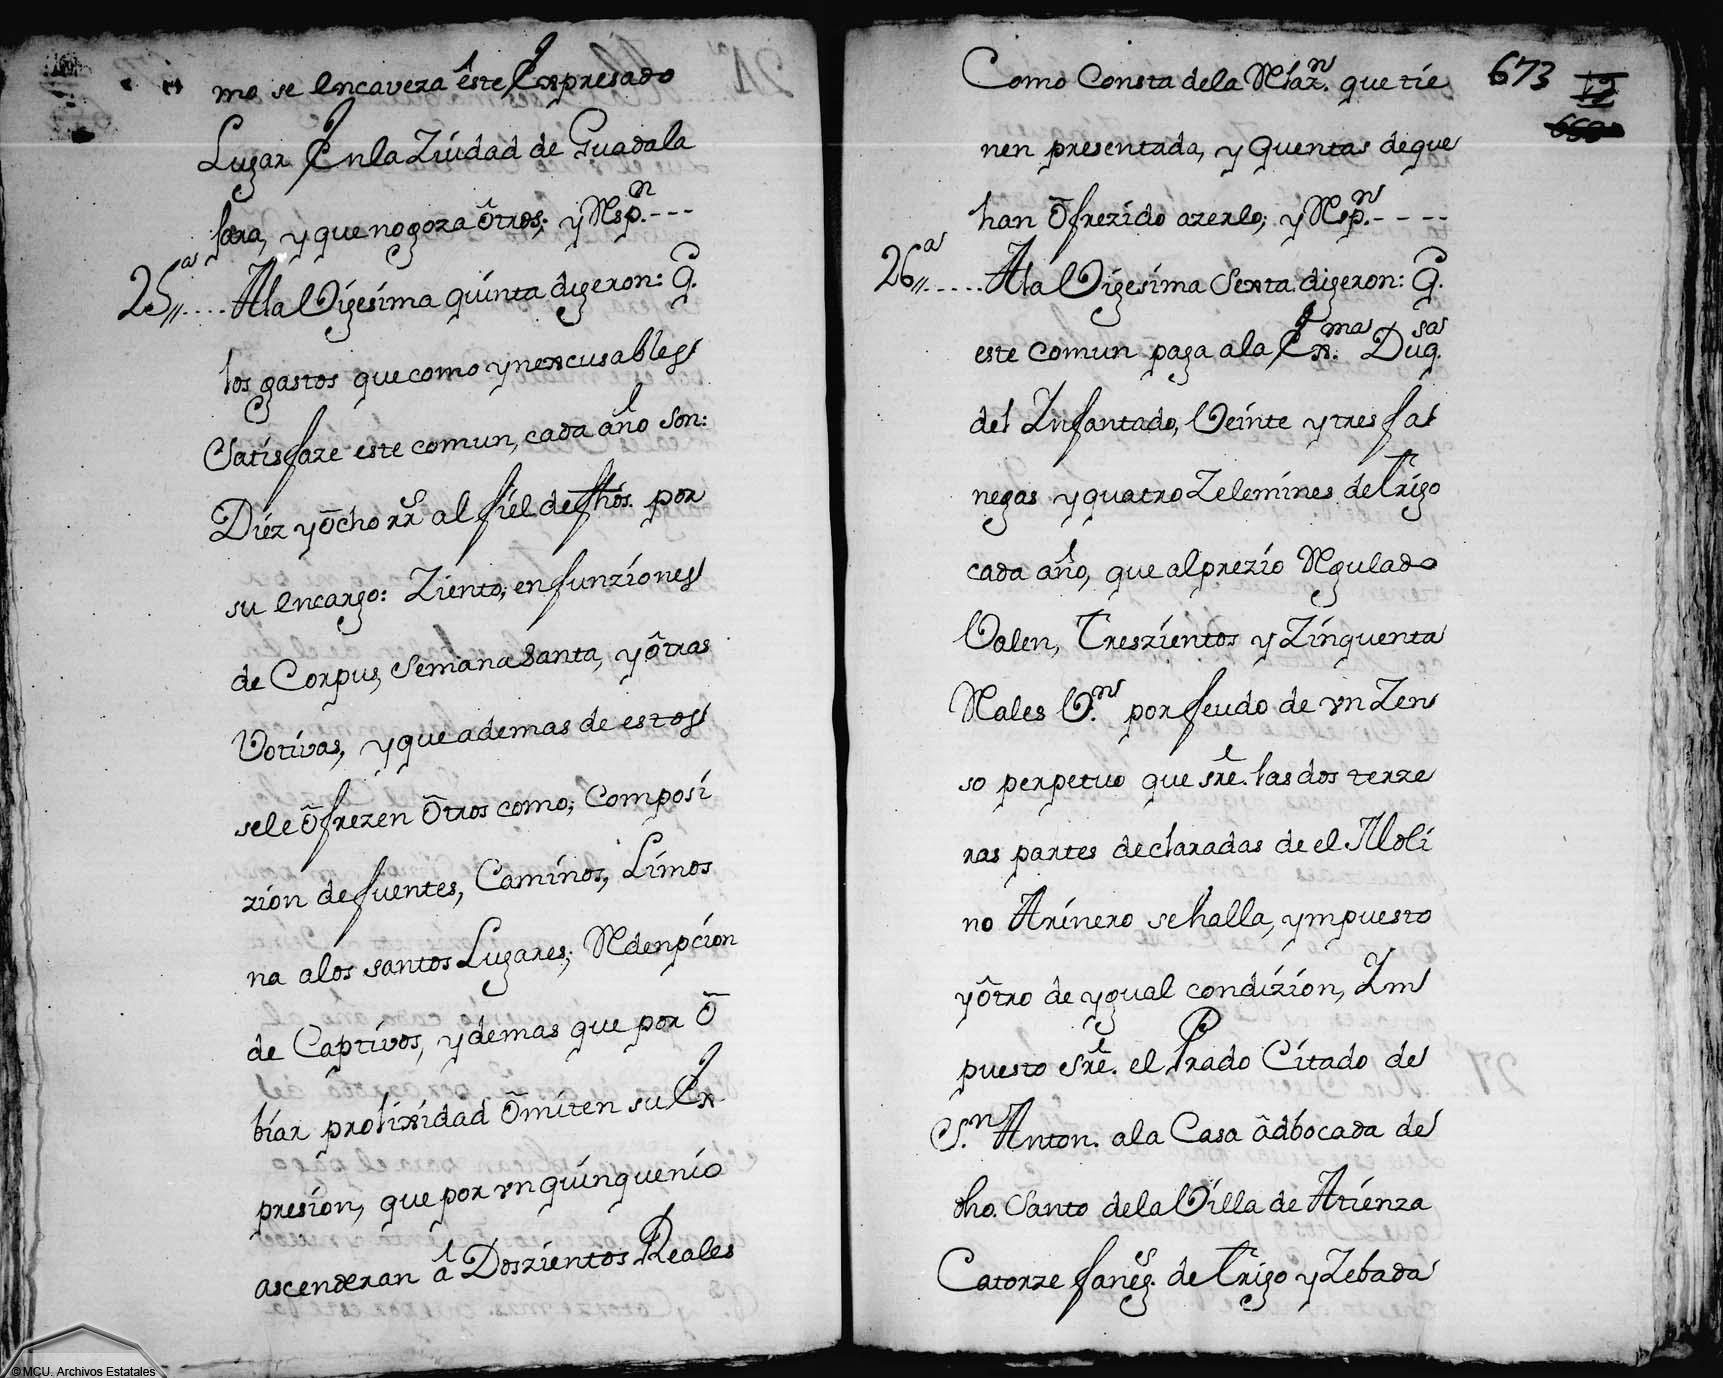 mo se encaveza êste Expresado
Lugar En la Ziudad de Guadala
jara, y que no goza ôtros; y Resp.n - - -
25,,as .... A la Vigesima quinta digeron: Q.
los gastos que como ynexcusables
Satisfaze este comun, cada año son:
Diez y ôcho rr.s al fiel de fhos. por
su encargo: Ziento, en funziones
de Corpus, Semana Santa, y ôtras
Votivas, y que ademas de estos
se le ôfrezen ôtros como; Composi
zion de fuentes, Caminos, Limos
na a los santos Lugares; Redenpcion
de Captivos, y demas que por ô
biar prolixidad ômiten su Ex
presion, que por vn quinquenio
ascenderan â Doszientos Reales
Como Consta de la Rlaz.n que tie
nen presentada, y Quentas de que
han ôfrezido azerlo; y Resp.n - - - -
26,,as ..... A la Vigesima Sexta digeron: Q.
este comun paga a la Ex.mas Duq.sas
del Infantado, Veinte y tres fa
negas y quatro Zelemines de Trigo
cada año, que al prezio Regulado
Valen, Treszientos y Zinquenta
Reales V.n por feudo de vn Zen
so perpetuo que sre. las dos terze
ras partes declaradas de el Moli
no Arinero se halla, ympuesto
y ôtro de ygual condizion, Im
puesto sre. el Prado Citado de
S.n Anton. a la Casa âdbocada de
dho. Santo de la Villa de Atienza
Catorze faneg.s de Trigo y Zebada
673
12
669
© MCU. Archivos Estatales